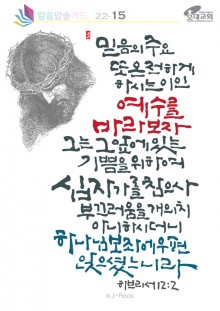 말씀암송카드 22-15
믿음의 주요
또 온전하게
하시는 이인
예수를
바라보자
그는 그 앞에 있는
기쁨을 위하여
십자가를 참으사
부끄러움을 개의치
아니하시더니
하나님 보좌 우편에
앉으셨느니라
히브리서 12:2
@ J-Rock